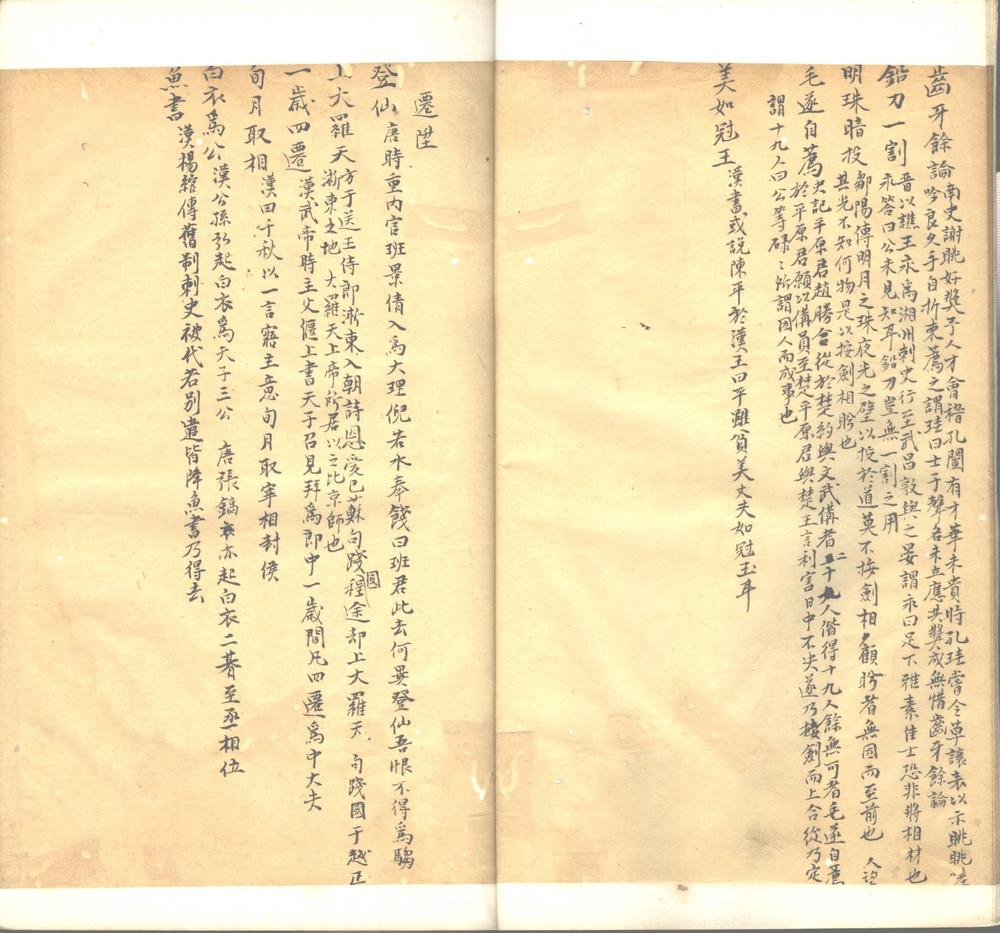 齒牙餘論南史謝眺好奬予人才會稽孔闓有才華未貴時孔珪嘗令草讓表以示眺眺嗟
吟良久手自折柬薦之謂珪曰士子聲名未立應共奬成無惜齒牙餘論
鉛刀一割晉以譙王永為湘州刺史行至武昌敦與之宴謂永曰足下雅素佳士恐非將相材也
永答曰公未見知耳鉛刀豈無一割之用
明珠暗投鄒陽傳明月之珠夜光之璧以投於道莫不按劍相顧眄者無因而至前也 人望
其光不知何物是以按劍相眄也
毛遂自薦史記平原君趙勝合從於楚約與文武備者二十人偕得十九人餘無可者毛遂自薦
於平原君願以備員至楚平原君與楚王言利害日中不決遂乃按劍而上合從乃定
謂十九人曰公等碌〻所謂因人而成事也
美如冠玉漢書或説陳平於漢王曰平雖貧美丈夫如冠玉耳
遷陞
登仙唐時重内官班景倩入為大理倪若水奉餞曰班君此去何異登仙吾恨不得為騶
上大羅天方于送王侍郎浙東入朝詩恩愛已蘇句踐國程途却上大羅天 句踐國于越正
浙東之地 大羅天上帝所居以之比京師也
一歲四遷漢武帝時主父偃上書天子召見拜為郎中一歲間凡四遷為中大夫
旬月取相漢田千秋以一言寤主意旬月取宰相封侯
白衣為公漢公孫弘起白衣為天子三公 唐張鎬亦起白衣二朞至丞相位
魚書漢楊綰傳舊制刺史被代若别遣皆降魚書乃得去